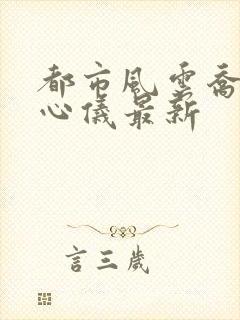 都市風雲喬
心儀最新
言三歲